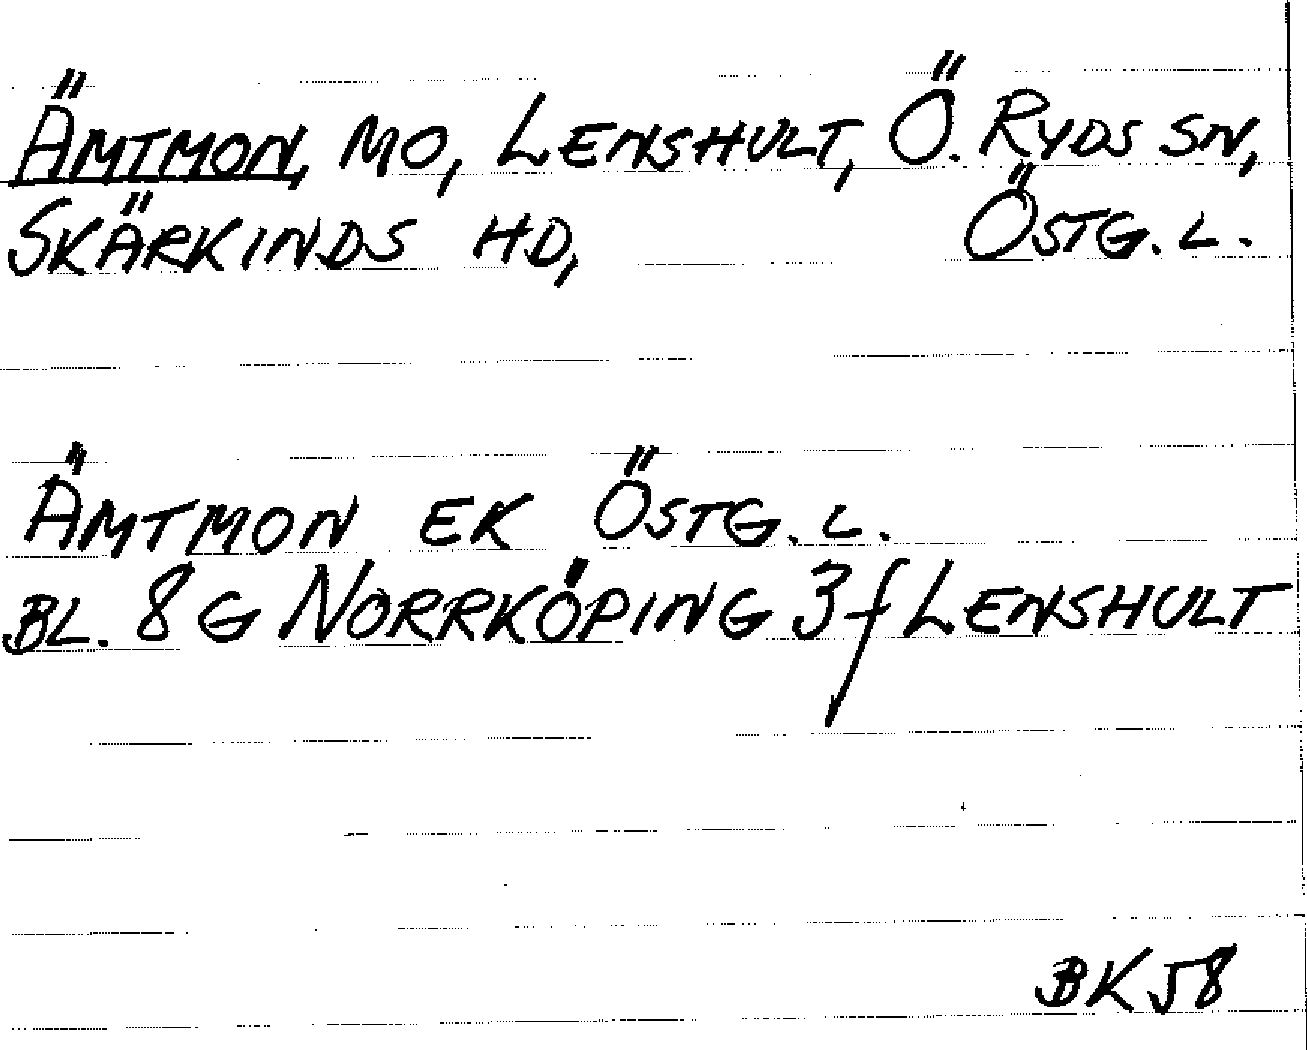 ÄMTMON, MO, LENSHULT, Ö. RYDS SN,
SKÄRKINDS HD, ÖSTG. L.
ÄMTMON EK ÖSTG. L.
BL. 8 G NORRKÖPING 3 f LENSHULT
BK 58